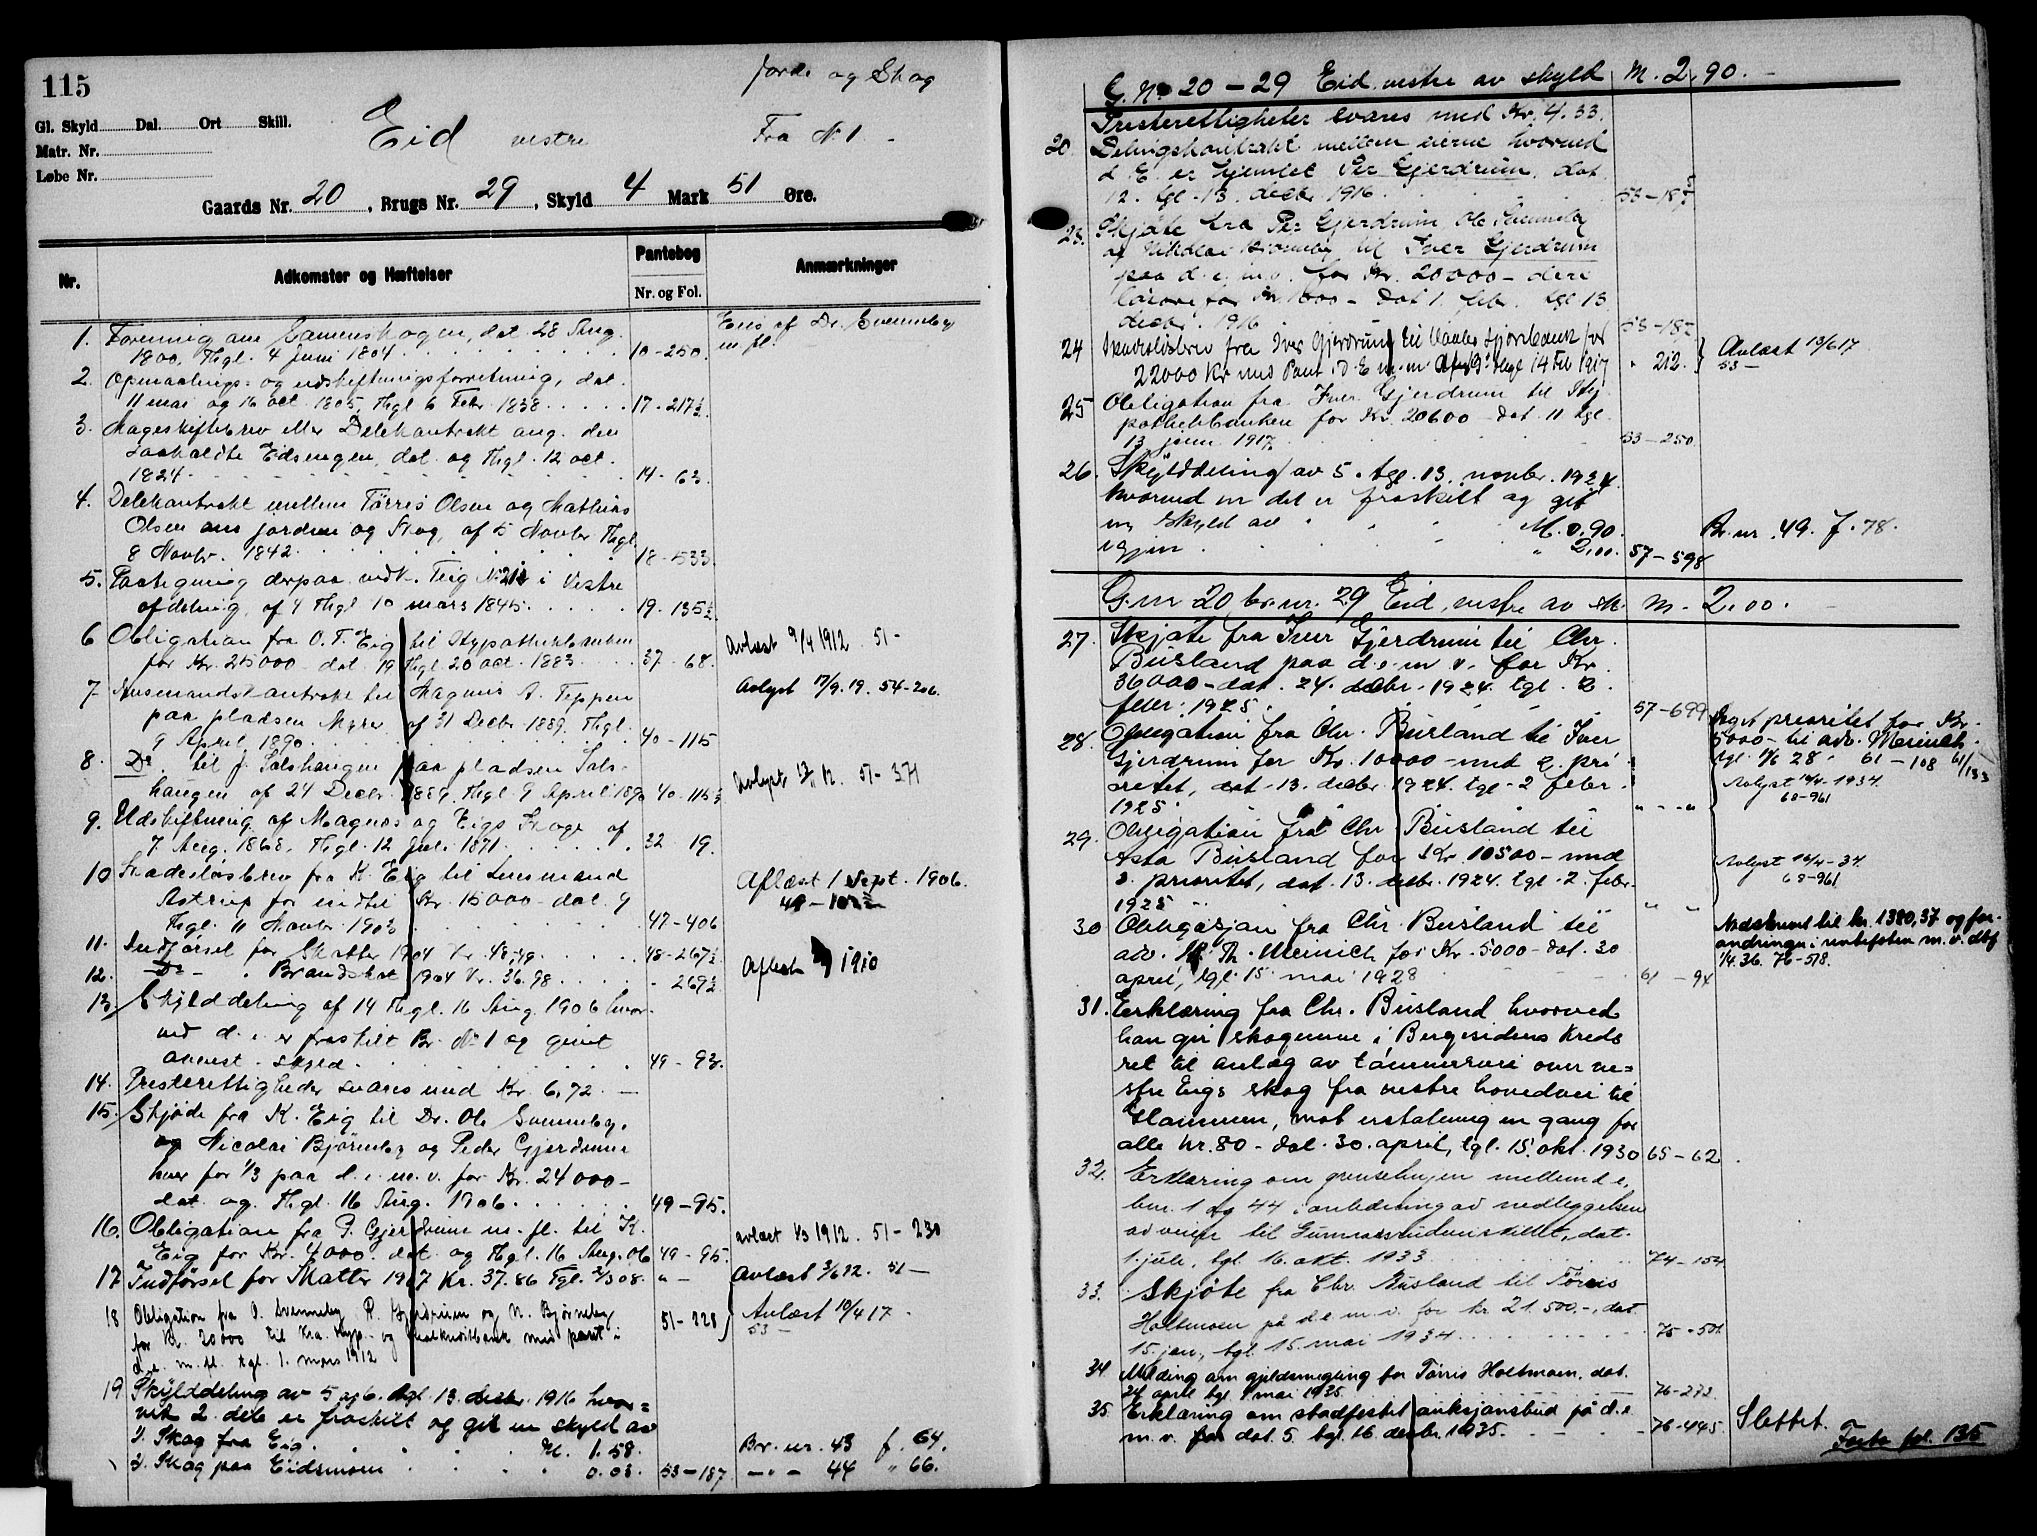 115
Jorde og Skog
Gl. Skyld Dal. Ort Skill.
Matr. Nr.
Løbe Nr.
Eid vestre
Fra No 1.
Gaards Nr. 20, Brugs Nr. 29, Skyld 4 Mark 51 Øre.
Nr. Adkomster og Hæftelser Pantebog Nr. og Fol. Anmærkninger
Eies af Dr. Svenneby m fl.
1. Forening om Camenskogen, dat. 28 Aug.
1800, Thgl. 4 juni 1804 10-250.
2. Opmaalings- og udskiftningsforretning, dat.
11 mai og 16 oct. 1805, Thgl 6 Febr. 1838 17-217½.
3. Mageskiftebrev eller Delekontrakt ang. den
saakaldte Eidsengen, dat. og Thgl. 12 oct.
1824 14-63.
4. Delekontrakt mellem Tørris Olsen og Mathias
Olsen om jorden og Skog, af 5 Novbr Thgl
8 Novbr. 1842 18-533.
5. Paategning derpaa vedk. Teig No 21 i Vestre
afdeling, af 4 Thgl 10 mars 1845 19-135½
6 Obligation fra O. T. Eig til Hypothekbanken
for Kr. 25000 dat. 19 Thgl 20 oct. 1883 37-68. Avlæst 9/4 1912 51-
7 Husmandskontrakt til Magnus A. Teppen
paa pladsen Myrer af 31 Decbr 1889, Thgl.
9 April 1890 40-115 Avlyst 17/9.19. 54-206.
8. Do til J. Solshaugen paa pladsen Sols-
haugen af 24 Decbr 1889, Thgl 9 April 1890 40-115½ Avlyst 12. 51-371
9. Udskiftning af Magnos og Eigs Skoge af
7 Aug. 1868, Thgl. 12 Juli 1871 32 19.
10 Skadesløsbrev fra K. Eig til Lensmand
Astrup for indtil Kr. 15000 dat. 9
Thgl. 11 Novbr. 1903 47-406 Aflæst 1 Sept. 1906.
11. Indførsel for Skatter 1904 Kr. 48,49 48-267½
12. Do - " Brandskat 1904 Kr. 36.98 - 269½ Aflæst 1910
13. Skylddeling af 14 Thgl. 16 Aug. 1906 hvor-
ved d. e. er fraskilt Br. No 1 og givet
anvist. skyld 49-93.
14. Presterettigheder svares med Kr. 6,72. —
15. Skjøde fra K. Eig til Dr. Ole Svenneby,
og Nicolai Bjørneby og Peder Gjerdrum
hver for 1/3 paa d. e. m. v. for Kr. 24000-
dat. og Thgl. 16 Aug. 1906 49-95.
16. Obligation fra P. Gjerdrum m. fl. til K.
Eig for Kr. 4000. dat. og Thgl. 16 Aug. 06 49-95. avlæst 1/3 1912. 51-230
17 Indførsel for Skatter 1907 Kr. 37.86 Tgl. 2/3 08. " - Avlæst 3/6 22. 51-
18 Obligation fra O. Svenneby, P. Gjerdrum og N. Bjørneby
for Kr. 20000 til Kra. Hyp- og Realkreditbank med pant i
d. e. m. fl. tgl. 1. mars 1912 51-228 Avlæst 10/4 17.
53-
19 Skylddeling av 5 og 6. tgl. 13. decbr. 1916 hvor=
ved 2 dele er fraskilt og git en skyld av
1. Skog fra Eig. M. 1.58. Br. nr. 43 f. 64.
2. Skog paa Eidsmoen " 0.03. 53-187. —"— 44 " 66.
G. Nr 20-29 Eid vestre av skyld M. 2.90.-
Presterettigheter svares med Kr. 4.33.
20. Delingskontrakt mellem eierne hvorved
d. E. er hjemlet Per Gjerdrum. dat.
12. tgl. 13. decbr 1916 53-187
23. Skjøte fra Per Gjerdrum, Ole Svenneby
og Nikolai Bjørneby til Iver Gjerdrum
paa d. e. m. v. for Kr. 20000- derav
løsøre for Kr. 1000- Dat 1. febr. tgl 13
decbr. 1916 53-187
24 Skadesløsbrev fra Iver Gjerdrum til Vaaler Sparebank for
22000 Kr med Pant i D. E m. m. tgl 14 Feb 1917 " 212. Avlæst 13/6 17
53-
25 Obligation fra Iver Gjerdrum til Hy-
pothekbanken for Kr. 20600 - dat. 11 tgl.
13 juni 1917 53-250
26. Skylddeling av 5. tgl. 13. novbr. 1924
hvorved en del er fraskilt og git
en skyld av M. 0.90. Br. nr. 49. f. 78.
igjen " 2.00. 57-598
G. nr 20 br. nr. 29 Eid, vestre av sk. M. 2.00.
27. Skjøte fra Iver Gjerdrum til Chr.
Busland paa d. e. m v. for Kr.
36000- dat. 24. decbr. 1924. tgl. 2.
febr. 1925 57-699
28. Obligation fra Chr. Busland til Iver
Gjerdrum for Kr. 10000- med 2. pri-
oritet, dat. 13. decbr. 1924. tgl 2 febr.
1925 " - - "
Veget prioritet for Kr.
5000- til adv. Meinich.
tgl. 4/6 28 61-108 61/133
Avlyst 16/4-1934.
68-961
29. Obligation fra Chr Busland til
Asta Busland for Kr. 10500- med
3. prioritet, dat. 13. decbr. 1924. tgl. 2. febr.
1925 " "
Avlyst 16/4-34.
68-961
30 Obligasjon fra Chr. Busland til
adv. Th. Meinich for Kr. 5000- dat. 30
april, tgl. 15 mai 1928 61-94
Nedskrevet til kr. 1380,37 og for-
andringer i rentefoten m. v. dbf.
1/4.36. 76-518.
31. Erklæring fra Chr. Busland hvorved
han gir skogeierne i Bergesidens Kreds
ret til anlæg av tømmervei over ve=
stre Eigs skog fra vestre hovedvei til
Glommen, mot erstatning en gang for
alle kr. 80- dat. 30. april, tgl. 15. okt. 1930 65-62.
32. Erklæring om grenselinjen mellem d. e.
bnr. 1 og 44 i anledning av nedleggelsen
av veien til Gunnarsrudmoskillet, dat.
1 juli, tgl. 16. okt. 1933 74-154
33. Skjøte fra Chr. Busland til Tørris
Holtmoen på d. e. m. v. for kr 21.500.-, dat
15. jan., tgl. 15. mai 1934 75-51.
34 Melding om gjeldsmegling for Tørris Holtmoen, dat.
24 april tgl 1 mai 1935 76-273.
35. Erklæring om stadfestet auksjonsbud på d. e
m. v. dat. 5. tgl. 16. decbr. 1935. 76-445. Slettet.
Forts fol. 135